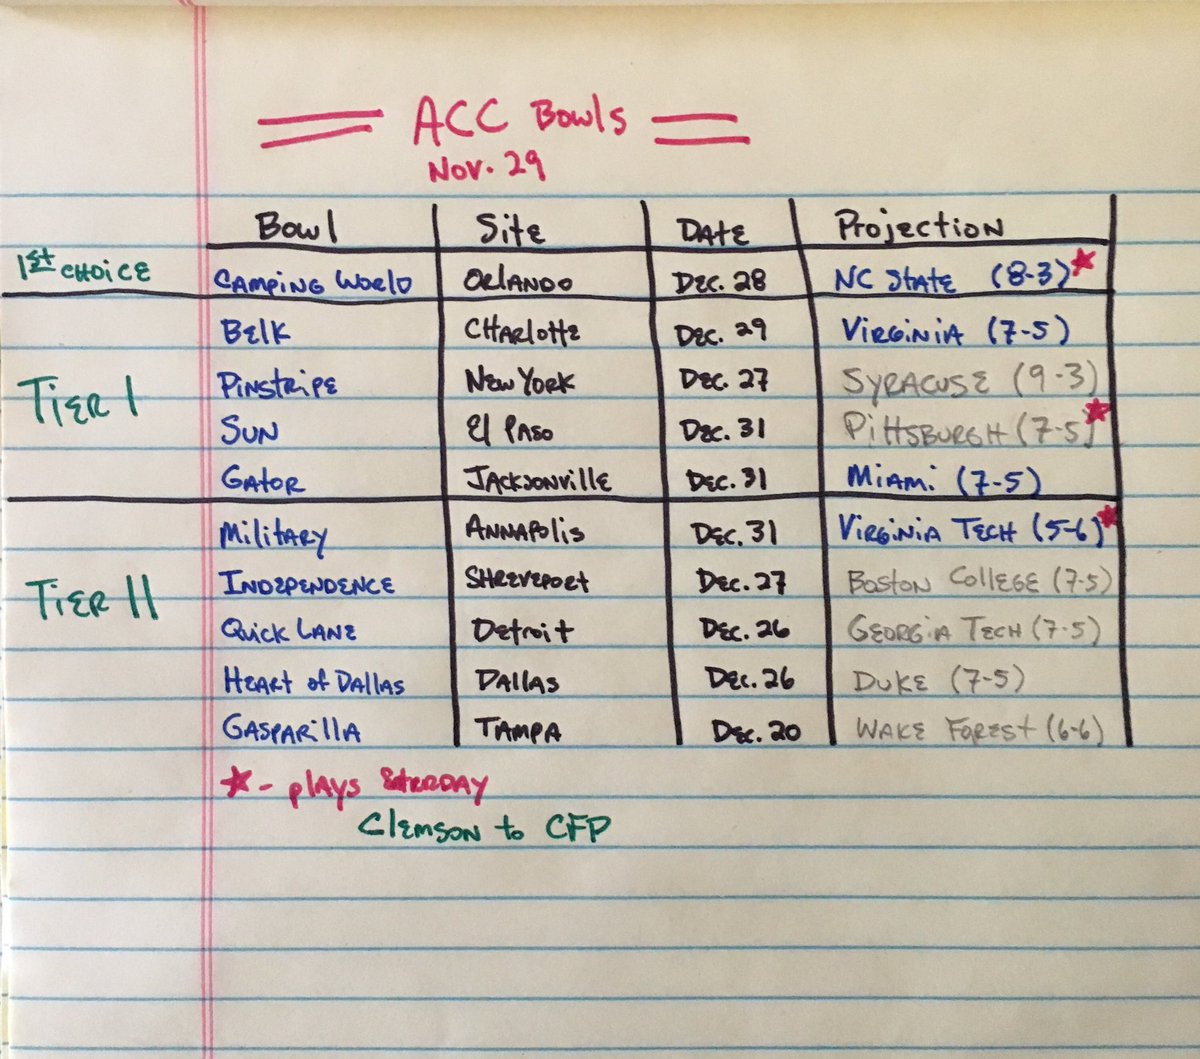 ACC Bowls
Nov. 29
Bowl Site Date Projection
1st Choice Camping World Orlando Dec. 28 NC State (8-3)★
Belk Charlotte Dec. 29 Virginia (7-5)
Tier I Pinstripe New York Dec. 27 Syracuse (9-3)
Sun El Paso Dec. 31 Pittsburgh (7-5)★
Gator Jacksonville Dec. 31 Miami (7-5)
Military Annapolis Dec. 31 Virginia Tech (5-6)★
Tier II Independence Shreveport Dec. 27 Boston College (7-5)
Quick Lane Detroit Dec. 26 Georgia Tech (7-5)
Heart of Dallas Dallas Dec. 26 Duke (7-5)
Gasparilla Tampa Dec. 20 Wake Forest (6-6)
★ - plays Saterday
Clemson to CFP